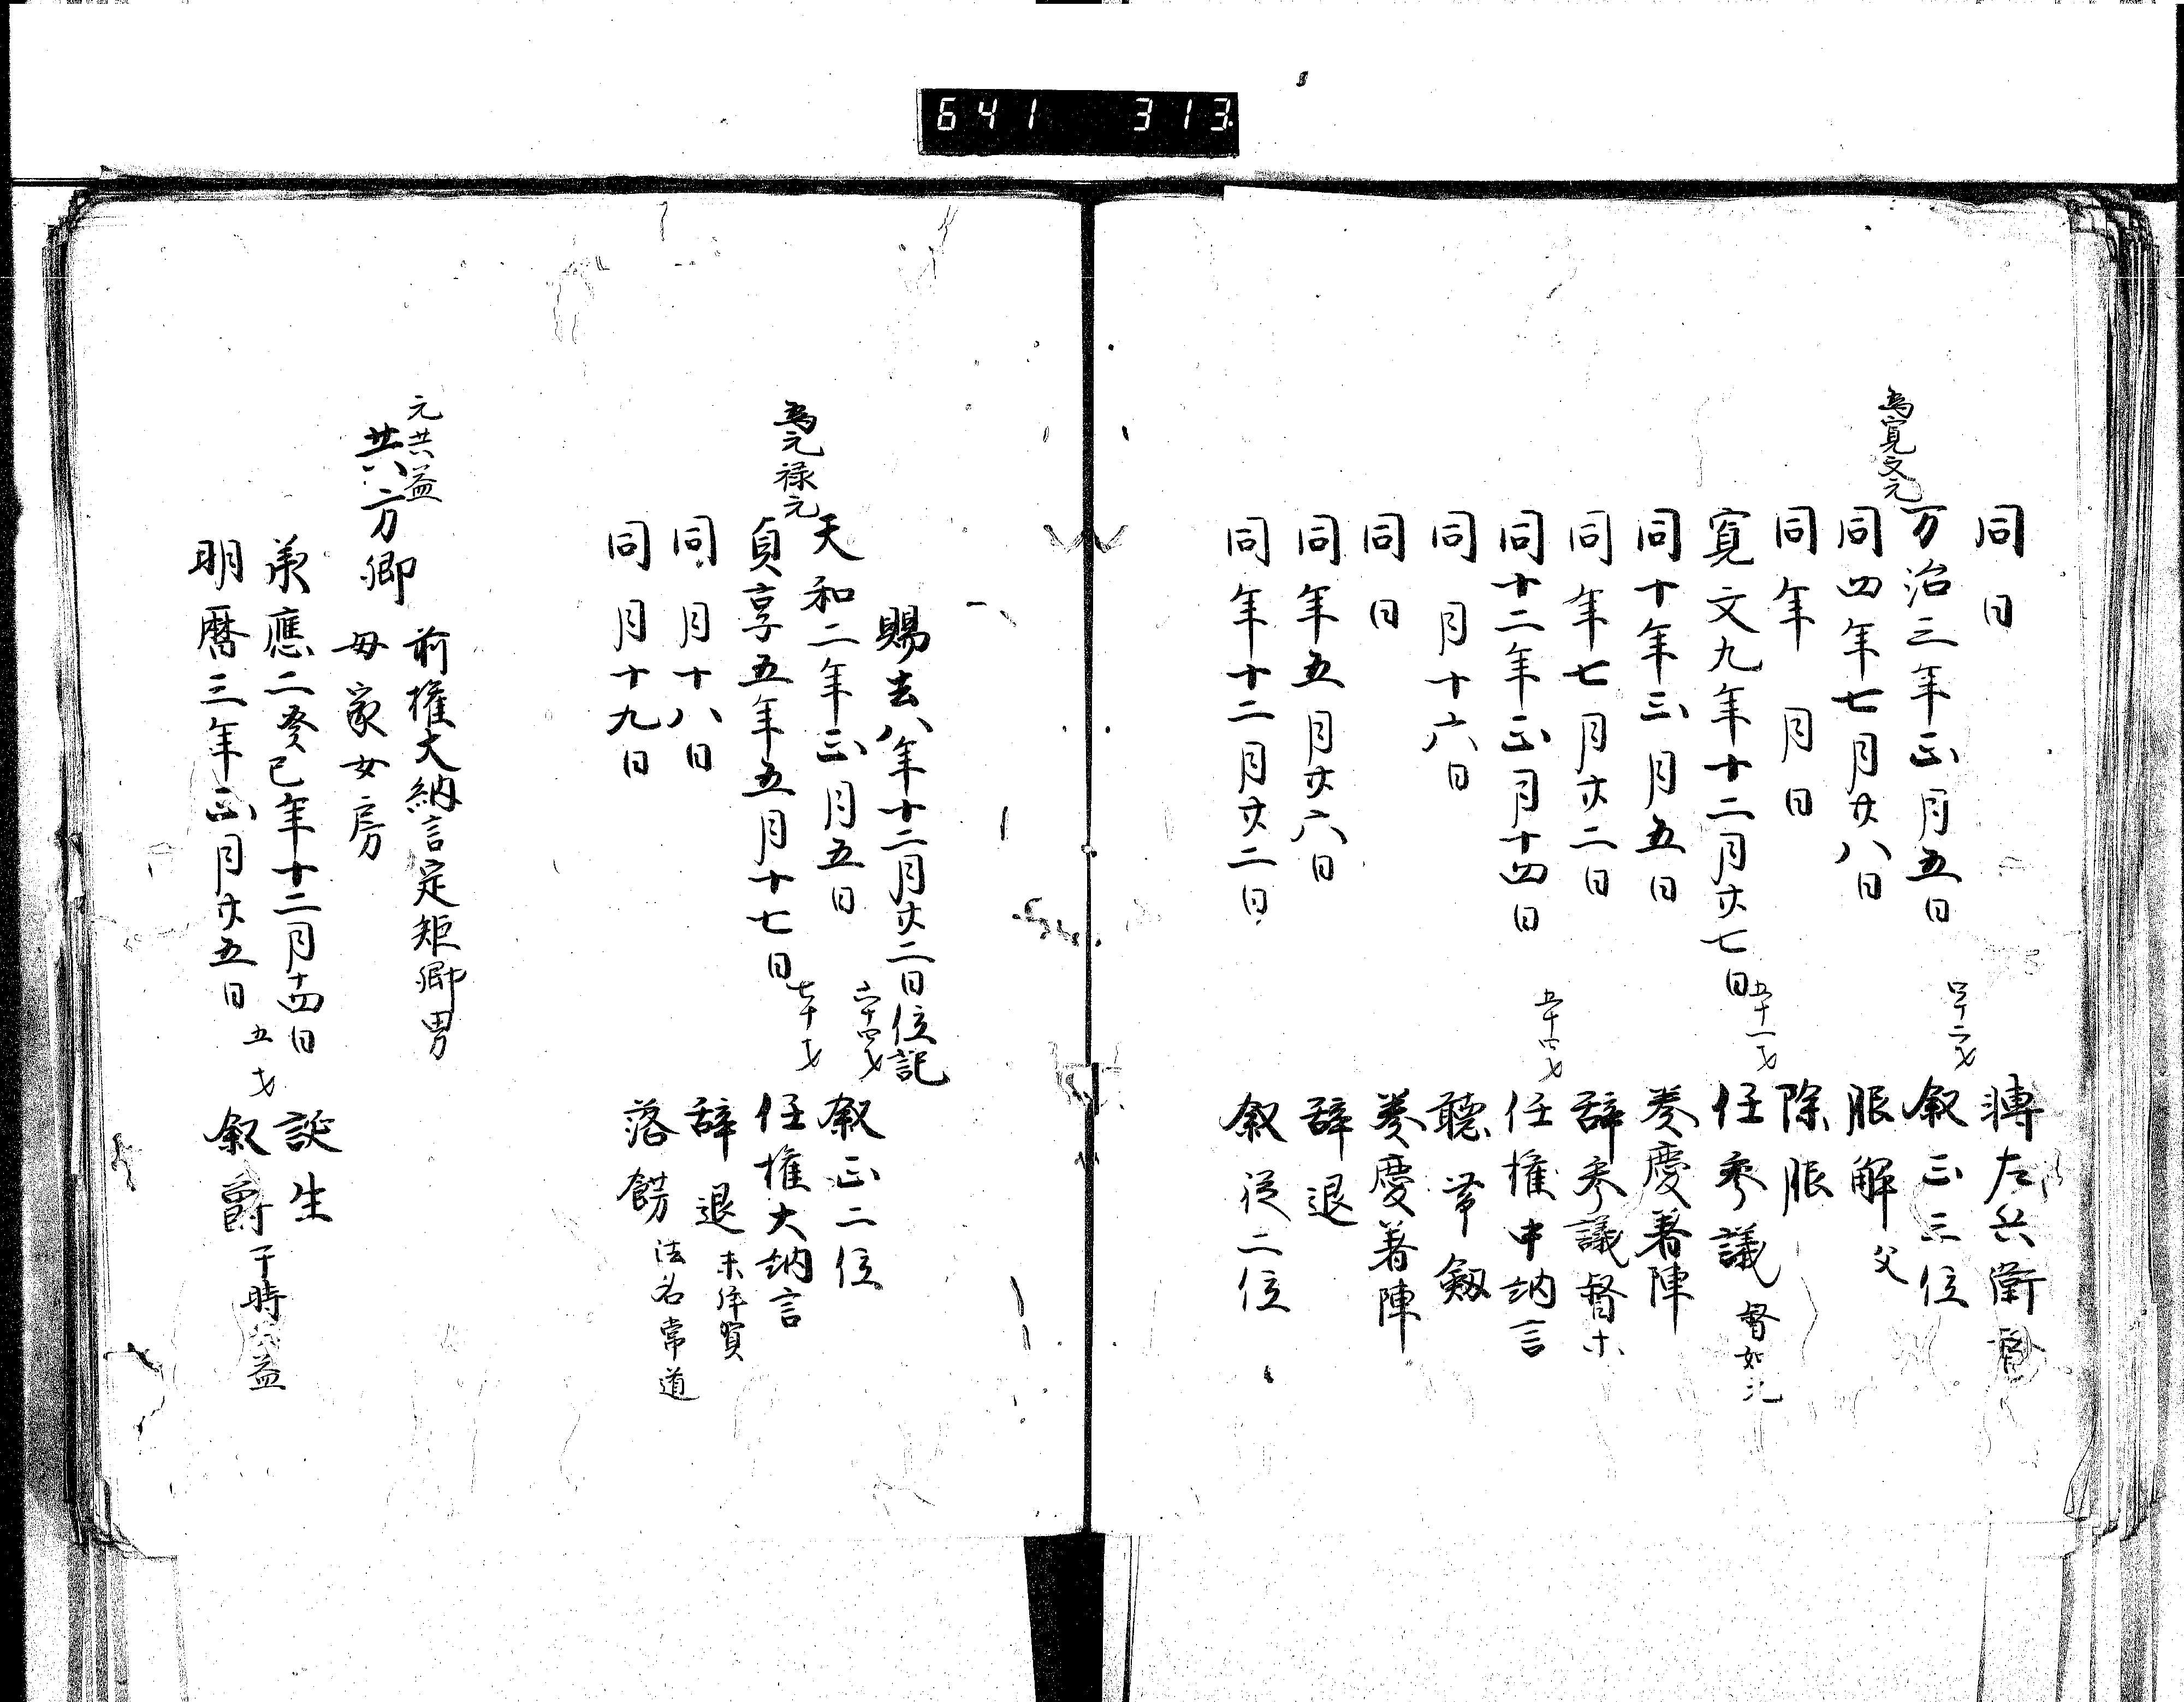 641 313
同日 轉左兵衛督
万治三年正月五日 四十二才 叙正三位
為寛文元
同四年七月廿八日 服解 父
同年 月 日 除服
寛文九年十二月廿七日 五十一才 任参議 督如元
同十年三月五日 奏慶著陣
同年七月廿二日 辞参議督等
同十二年正月十四日 五十四才 任権中納言
同月十六日 聴帯剱
同日 奏慶著陣
同年五月廿六日 辞退
同年十二月廿二日 叙従二位
賜去八年十二月廿二日位記
天和二年正月五日 六十四才 叙正二位
為元禄元
貞享五年五月十七日 七十才 任権大納言
同月十八日 辞退 未拝賀
同月十九日 落餝 法名常道
元共益
共方卿 前権大納言定矩卿男
母家女房
承應二癸巳年十二月十四日 誕生
明暦三年正月廿五日 五才 叙爵 于時共益